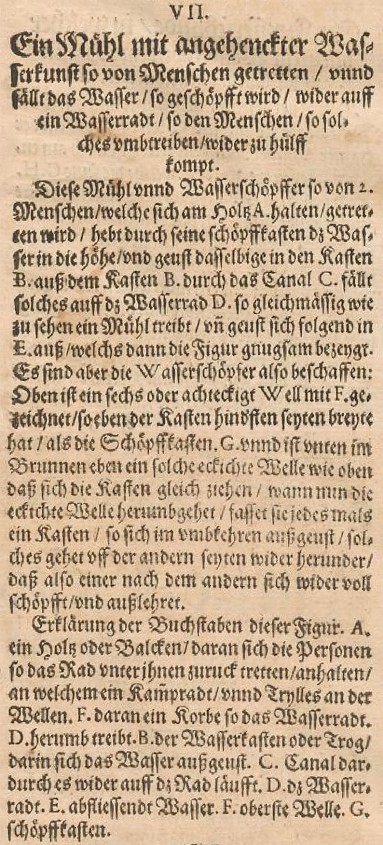 VII.
Ein Mühl mit angehenckter Was-
serkunst so von Menschen getretten / vnnd
fällt das Wasser / so geschöpfft wird / wider auff
ein Wasserradt / so den Menschen / so sol-
ches vmbtreiben / wider zu hülff
kompt.
Diese Mühl vnnd Wasserschöpffer so von 2.
Menschen / welche sich am Holtz A. halten / getret-
ten wird / hebt durch seine schöpffkasten dz Was-
ser in die höhe / vnd geust dasselbige in den Kasten
B. auß dem Kasten B. durch das Canal C. fällt
solches auff dz Wasserrad D. so gleichmässig wie
zu sehen ein Mühl treibt / vñ geust sich folgend in
E. auß / welchs dann die Figur gnugsam bezeygt.
Es sind aber die Wasserschöpfer also beschaffen:
Oben ist ein sechs oder achteckigt Well mit F. ge-
zeichnet / so eben der Kasten hindsten seyten breyte
hat / als die Schöpffkasten. G. vnnd ist vnten im
Brunnen eben ein solche eckichte Welle wie oben
daß sich die Kasten gleich ziehen / wann nun die
eckichte Welle herumbgehet / fasset sie jedes mals
ein Kasten / so sich im vmbkehren außgeust / sol-
ches gehet vff der andern seyten wider herunder /
daß also einer nach dem andern sich wider voll
schöpfft / vnd außlehret.
Erklärung der Buchstaben dieser Figur. A.
ein Holtz oder Balcken / daran sich die Personen
so das Rad vnter jhnen zuruck tretten / anhalten /
an welchem ein Kam̃radt / vnnd Trylles an der
Wellen. F. daran ein Korbe so das Wasserradt.
D. herumb treibt. B. der Wasserkasten oder Trog /
darin sich das Wasser außgeust. C. Canal dar-
durch es wider auff dz Rad läufft. D. dz Wasser-
radt. E. abfliessendt Wasser. F. oberste Welle. G.
schöpffkasten.